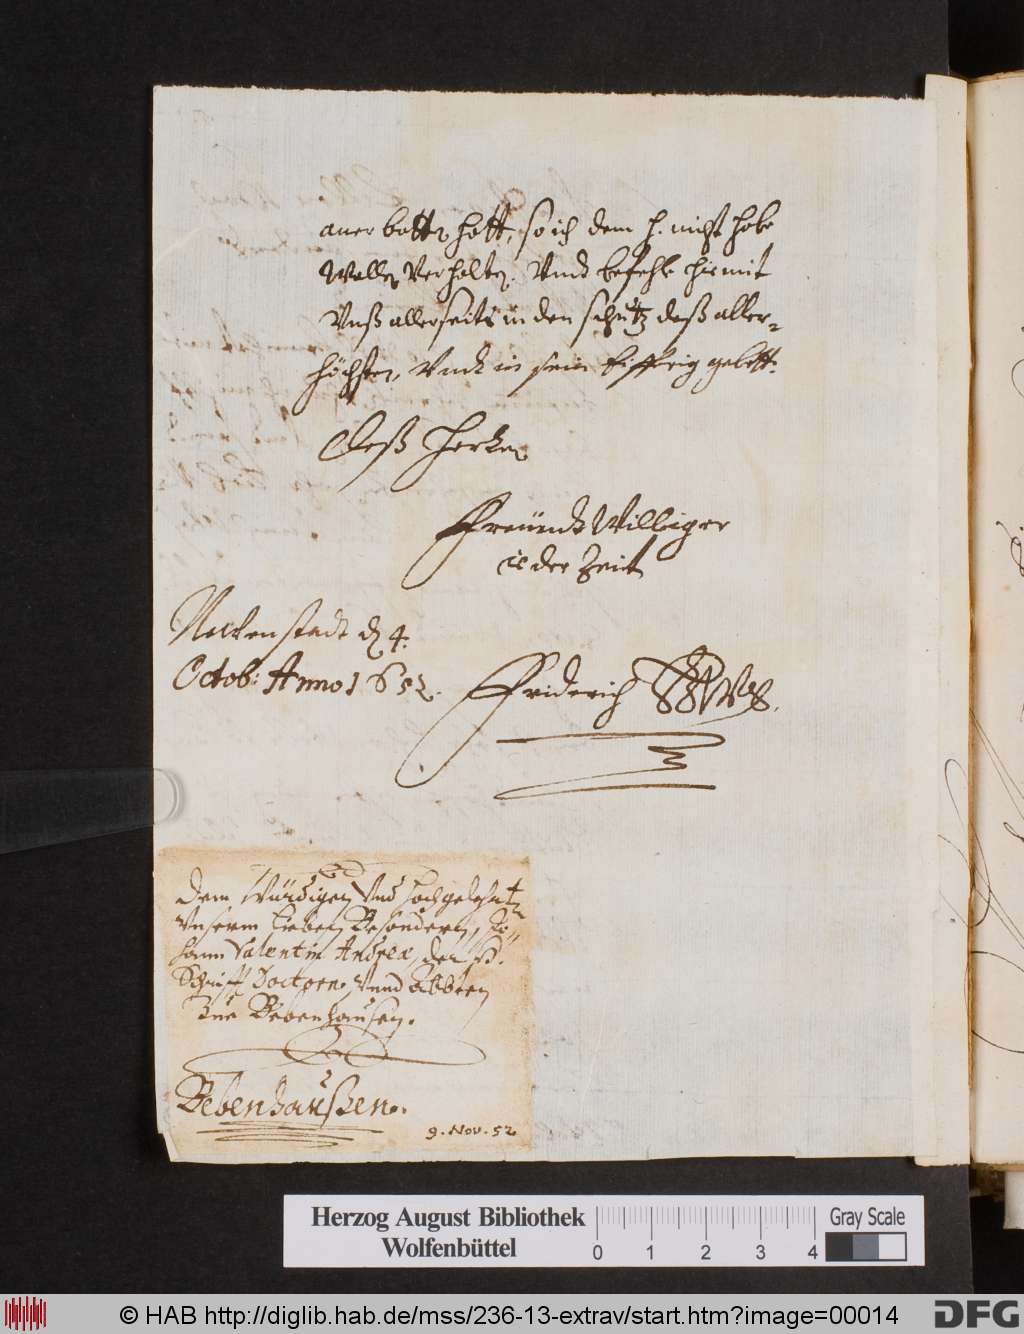 anerbotten hatt, so ich dem H. nicht habe
Wollen Verhalten. Vnd befehle hiemit
Vnß allerseits in den schutz deß aller-
höchsten, Vndt in sein
Deß Herren
Freündt Williger
der Zeit
Neuenstadt d. 4.
Octob: Anno 1652.
Friderich
Dem Würdigen Vnd Hochgelehrten
Vnserm Lieben Besondern, Jo-
hann Valentin Andreæ, der H.
Schrifft Doctorn, Vnnd Abbten
Zue Bebenhausen.
Bebenhaußen.
9. Nov. 52
Herzog August Bibliothek
Wolfenbüttel
0 1 2 3 4
Gray Scale
© HAB http://diglib.hab.de/mss/236-13-extrav/start.htm?image=00014
DFG